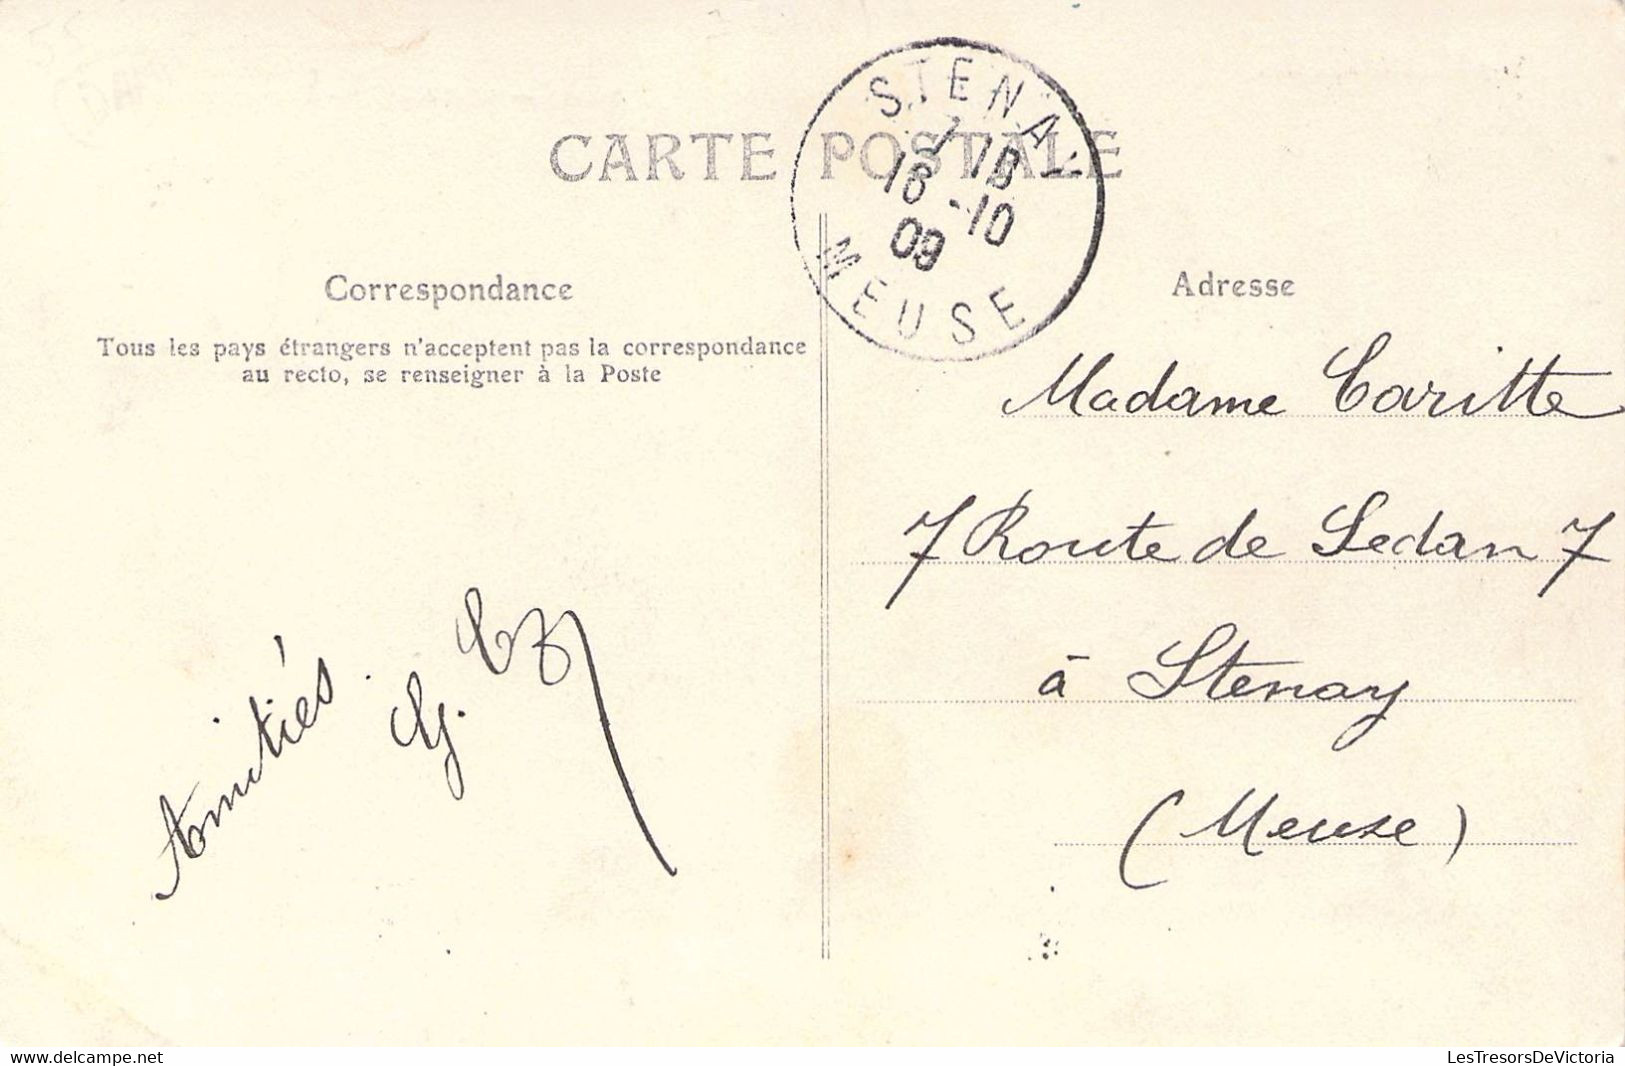 CARTE POSTALE
STENAY
7 15
16 -10
09
MEUSE
Correspondance
Tous les pays étrangers n'acceptent pas la correspondance
au recto, se renseigner à la Poste
Amitiés
Adresse
Madame Caritte
7 Route de Sedan 7
à Stenay
(Meuse)
delcampe.net
LesTresorsDeVictoria